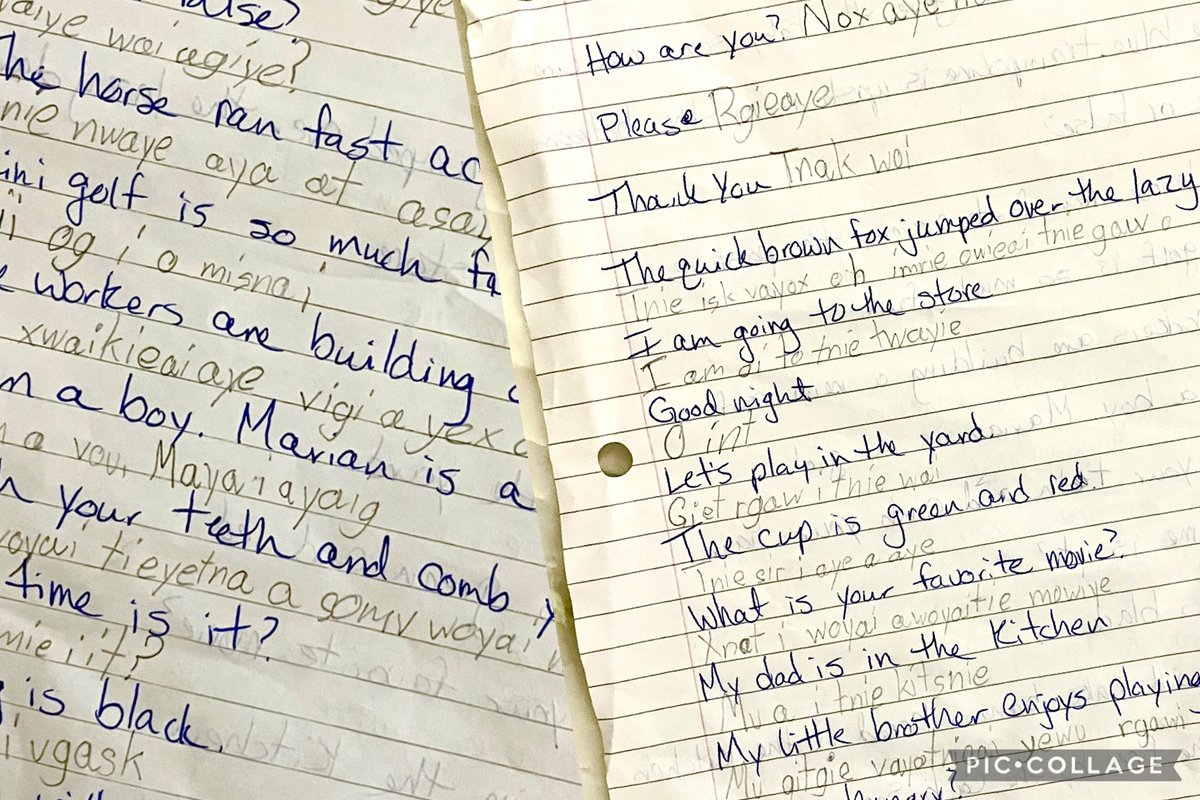 ause?
aiye wai agiye?
The horse ran fast ac
nie nwaye aya at asay
ini golf is so much fu
og i o misna i
workers are building
xwaikieaiaye vigi a yex
m a boy. Marian is a
a vou Maya i ayaig
your teeth and comb y
voyai tieyetna a somv woyai
time is it?
mie i it?
is black.
i vgask
How are you? Nox aye
Please Rgieaye
Thank You Tnak wai
The quick brown fox jumped over the lazy
Tnie isk vayox oih imrie owieai tnie gaw o
I am going to the store
I am oi to tnie twayie
Good night
O int
Let's play in the yard.
Giet rgaw i tnie wai
The cup is green and red.
Tnie sir i aye a aye
What is your favorite movie?
Xnat i woyai awoyaitie mowiye
My dad is in the Kitchen
Mu a i tnie kitsnie
My little brother enjoys playing
My gitgie vayotnieai yewu rgawi
hungry?
PIC•COLLAGE